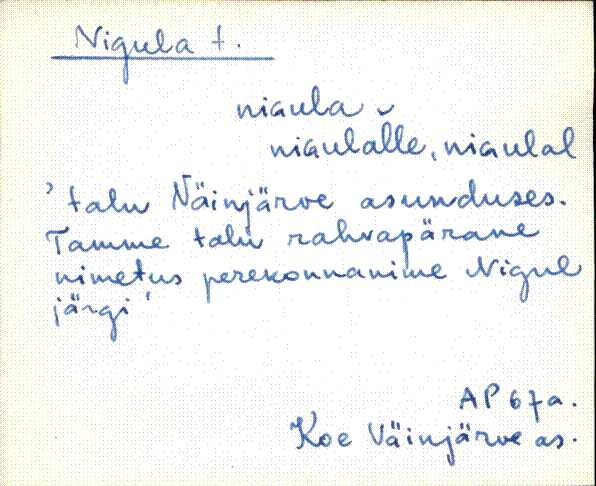 Nigula t.
niɢula
niɢulălle, niɢulal
' talu Väinjärve asunduses.
Tamme talu rahvapärane
nimetus perekonnanime Nigul
järgi '
AP 67a.
Koe Väinjärve as.